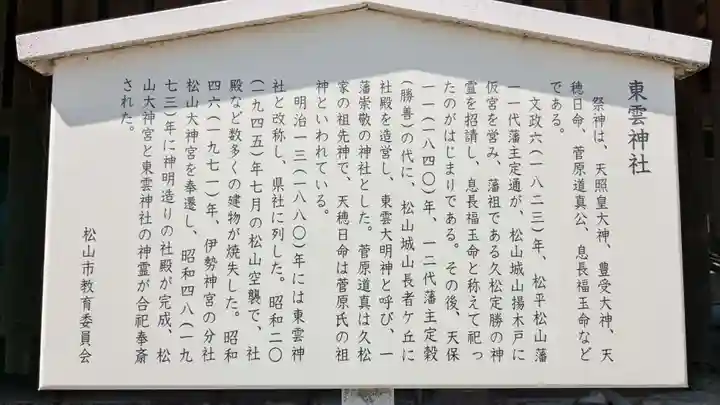 東雲神社
祭神は、天照皇大神、豊受大神、天
穂日命、菅原道真公、息長福玉命など
である。
文政六(一八二三)年、松平松山藩
一一代藩主定通が、松山城山揚木戸に
仮宮を営み、藩祖である久松定勝の神
霊を招請し、息長福玉命と称えて祀っ
たのがはじまりである。その後、天保
一一(一八四〇)年、一二代藩主定穀
(勝善)の代に、松山城山長者ケ丘に
社殿を造営し、東雲大明神と呼び、一
藩崇敬の神社とした。菅原道真は久松
家の祖先神で、天穂日命は菅原氏の祖
神といわれている。
明治一三(一八八〇)年には東雲神
社と改称し、県社に列した。昭和二〇
(一九四五)年七月の松山空襲で、社
殿など数多くの建物が焼失した。昭和
四六(一九七一)年、伊勢神宮の分社
松山大神宮を奉遷し、昭和四八(一九
七三)年に神明造りの社殿が完成、松
山大神宮と東雲神社の神霊が合祀奉斎
された。
松山市教育委員会